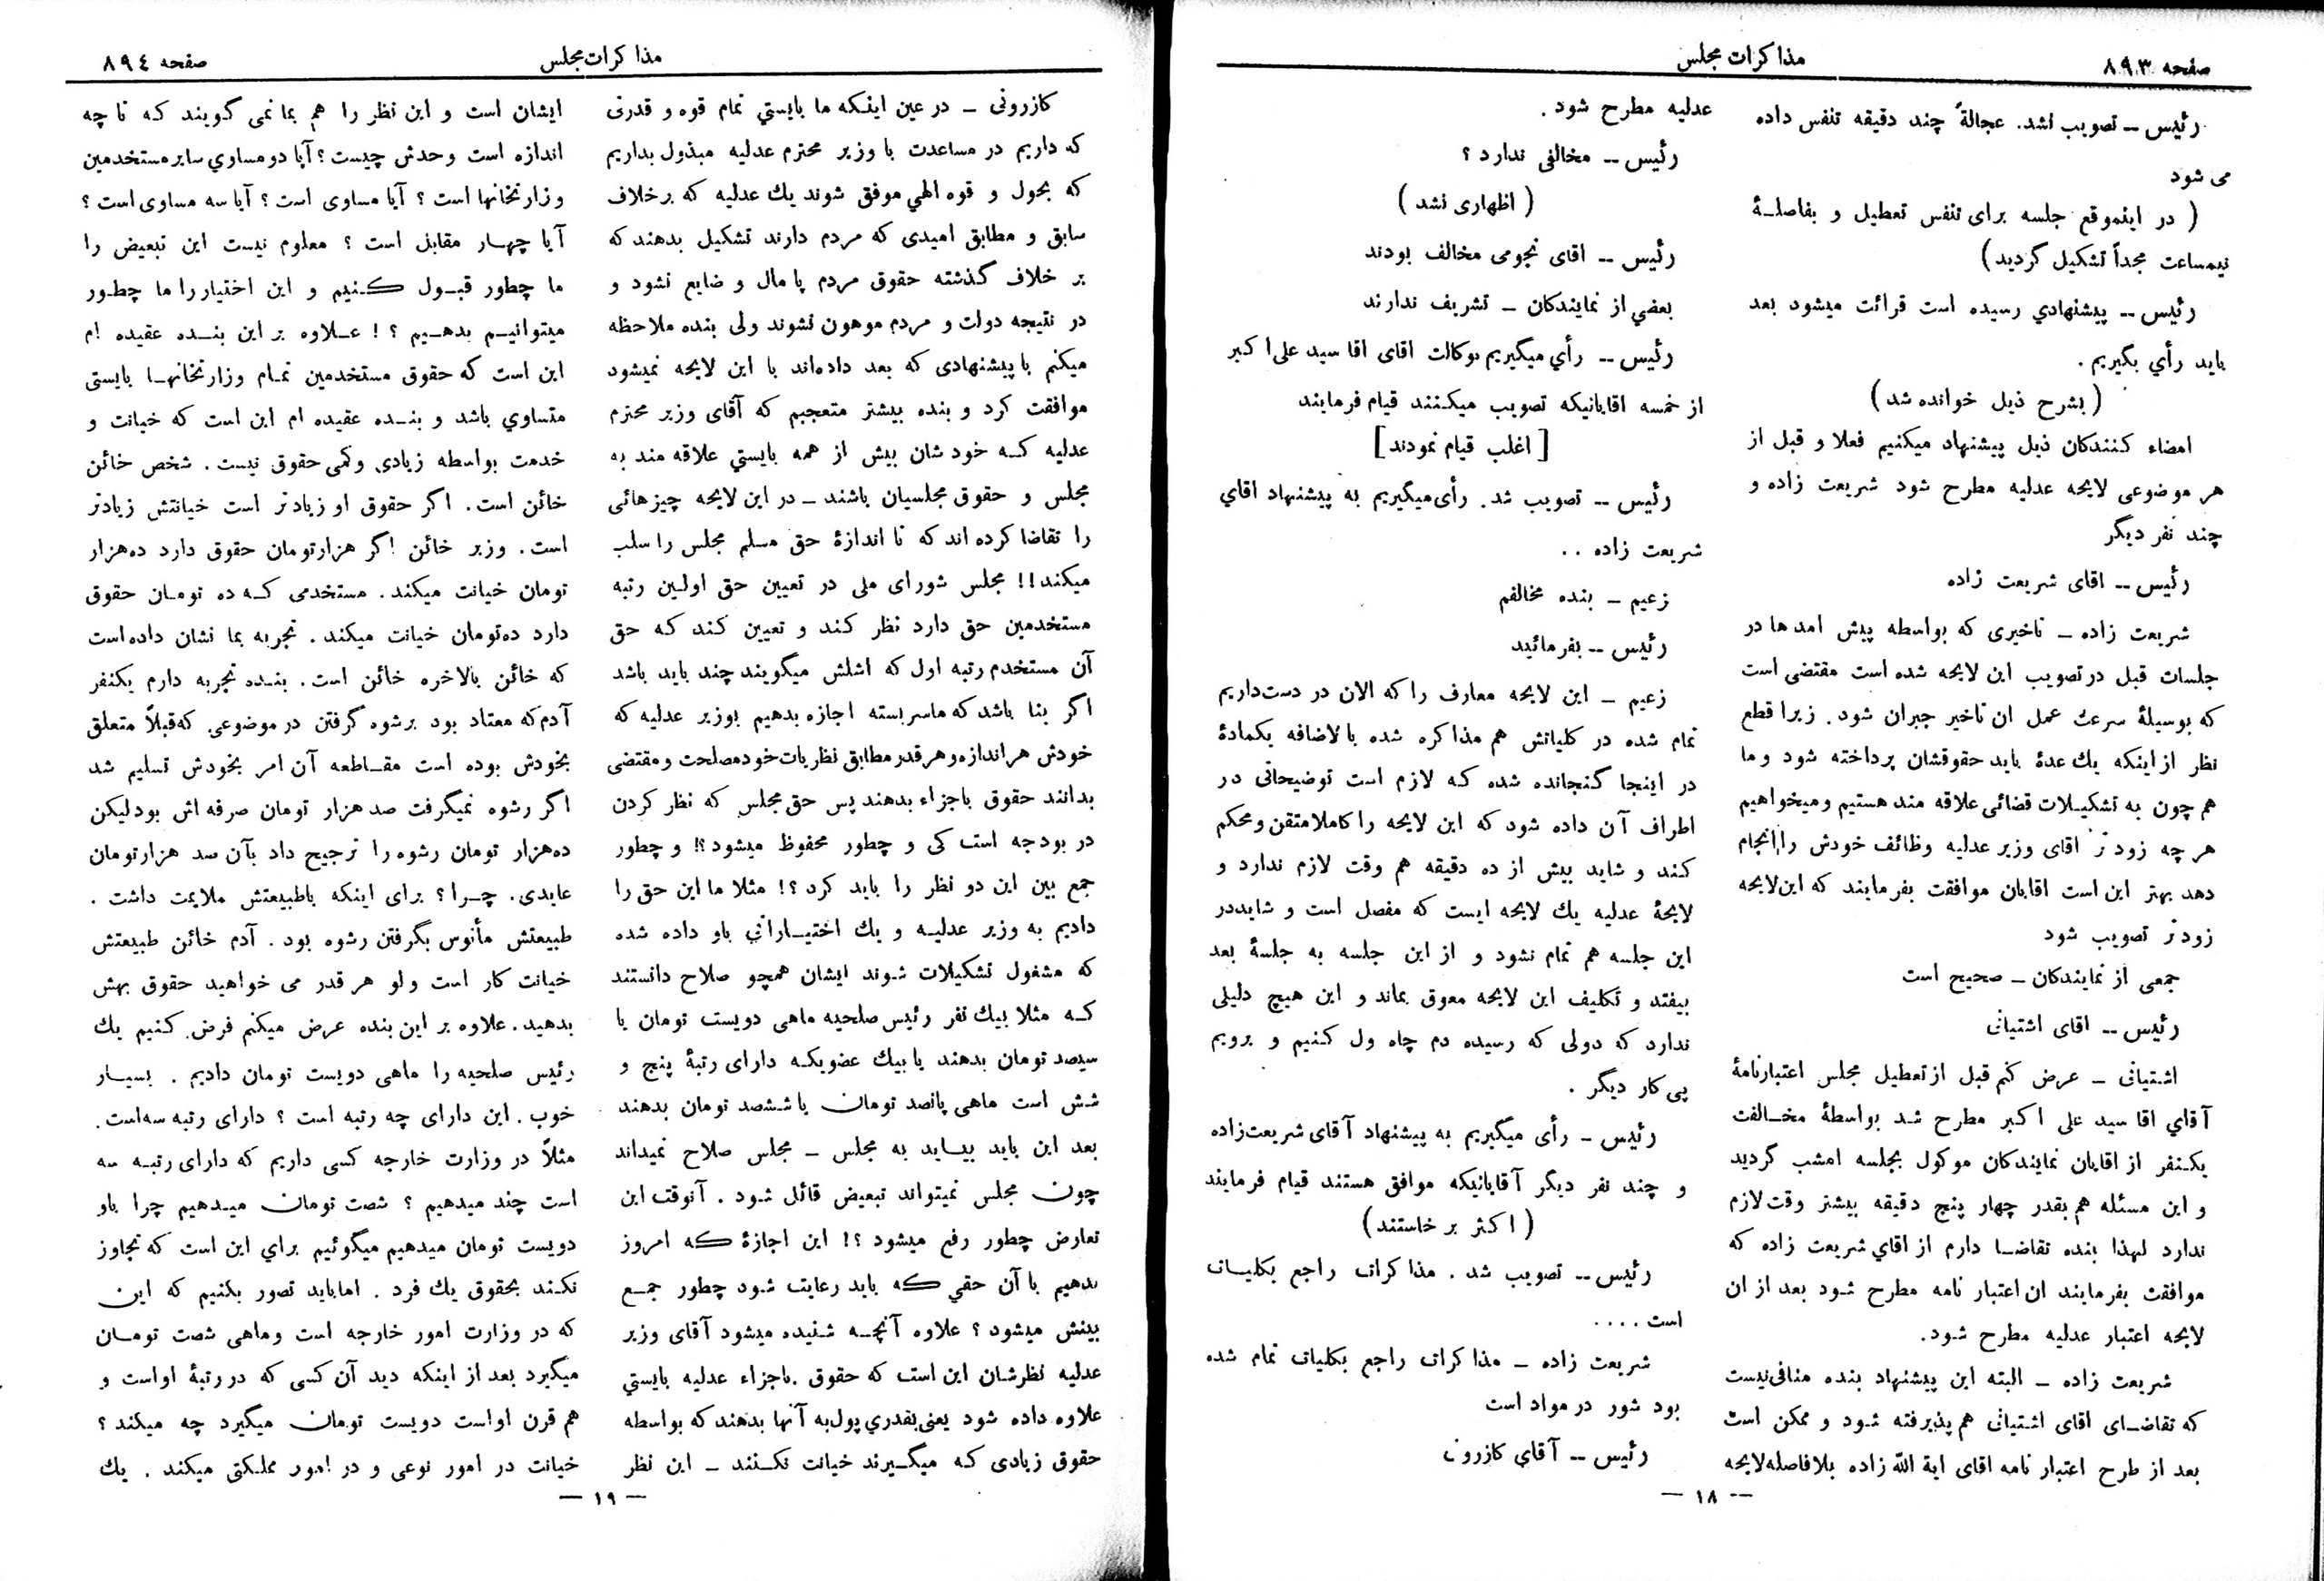 صفحه ۸۹۳
مذاکرات مجلس
رئیس -- تصویب نشد. عجالةً چند دقیقه تنفس داده
می شود
( در اینموقع جلسه برای تنفس تعطیل و بفاصلـۀ
نیمساعت مجداً تشکیل گردید)
رئیس -- پیشنهادي رسیده است قرائت میشود بعد
باید رأي بگیریم .
(بشرح ذیل خوانده شد)
امضاء کنندکان ذیل پیشنهاد میکنیم فعلا و قبل از
هر موضوعی لایحه عدلیه مطرح شود شریعت زاده و
چند نفر دیگر
رئیس -- اقای شریعت زاده
شریعت زاده – تاخیری که بواسطه پیش امدها در
جلسات قبل در تصویب این لایحه شده است مقتضی است
که بوسیلۀ سرعت عمل ان تاخیر جبران شود. زیرا قطع
نظر از اینکه یك عدۀ باید حقوقشان پرداخته شود و ما
هم چون به تشکیلات قضائی علاقه مند هستیم و میخواهیم
هر چه زود تر اقای وزیر عدلیه وظائف خودش را انجام
دهد بهتر این است اقایان موافقت بفرمایند که این لایحه
زودتر تصویب شود
جمعی از نمایندکان – صحیح است
رئیس -- اقای اشتیانی
اشتیانی – عرض کنم قبل از تعطیل مجلس اعتبارنامۀ
آقاي اقا سید علی اکبر مطرح شد بواسطۀ مخـالفت
یکنفر از اقایان نمایندکان موکول بجلسه امشب گردید
و این مسئله هم بقدر چهار پنج دقیقه بیشتر وقت لازم
ندارد لهذا بنده تقاضـا دارم از اقاي شریعت زاده که
موافقت بفرمایند ان اعتبار نامه مطرح شود بعد از ان
لایحه اعتبار عدلیه مطرح شود.
شریعت زاده – البته این پیشنهاد بنده منافی نیست
که تقاضـای اقای اشتیانی هم پذیرفته شود و ممکن است
بعد از طرح اعتبار نامه اقای ایة الله زاده بلافاصله لایحه
عدلیه مطرح شود .
رئیس -- مخالفی ندارد ؟
( اظهاری نشد )
رئیس -- اقای نجومی مخالف بودند
بعضي از نمایندکان – تشریف ندارند
رئیس -- رأي میگیریم بوکالت اقای اقا سید علی اکبر
از خمسه اقایانیکه تصویب میکنند قیام فرمایند
[ اغلب قیام نمودند]
رئیس -- تصویب شد. رأی میگیریم به پیشنهاد اقاي
شریعت زاده ..
زعیم – بنده مخالفم
رئیس -- بفرمائید
زعیم – این لایحه معارف را که الان در دست داریم
تمام شده در کلیاتش هم مذاکره شده بالاضافه یکمادۀ
در اینجا گنجانده شده که لازم است توضیحاتی در
اطراف آن داده شود که این لایحه را کاملا متقن و محکم
کند و شاید بیش از ده دقیقه هم وقت لازم ندارد و
لایحۀ عدلیه یك لایحه ایست که مفصل است و شاید در
این جلسه هم تمام نشود و از این جلسه به جلسۀ بعد
بیفتد و تکلیف این لایحه معوق بماند و این هیچ دلیلی
ندارد که دولی که رسیده دم چاه ول کنیم و برویم
پی کار دیگر .
رئیس – رأی میگیریم به پیشنهاد آقای شریعت زاده
و چند نفر دیگر آقایانیکه موافق هستند قیام فرمایند
( اکثر بر خاستند)
رئیس -- تصویب شد . مذاکرات راجع بکلیـات
است ....
شریعت زاده – مذاکرات راجع بکلیات تمام شده
بود شور در مواد است
رئیس -- آقاي کازرونی
— ۱۸ —
مذاکرات مجلس
صفحه ۸۹٤
کازرونی – در عین اینکه ما بایستي تمام قوه و قدرتی
که داریم در مساعدت با وزیر محترم عدلیه مبذول بداریم
که بحول و قوه الهي موفق شوند یك عدلیه که برخلاف
سابق و مطابق امیدی که مردم دارند تشکیل بدهند که
بر خلاف گذشته حقوق مردم پامال و ضایع نشود و
در نتیجه دولت و مردم موهون نشوند ولی بنده ملاحظه
میکنم با پیشنهادی که بعد داده‌اند با این لایحه نمیشود
موافقت کرد و بنده بیشتر متعجبم که آقای وزیر محترم
عدلیه کـه خود شان بیش از همه بایستي علاقه مند به
مجلس و حقوق مجلسیان باشند – در این لایحه چیزهائی
را تقاضا کرده اند که تا اندازۀ حق مسلم مجلس را سلب
میکند!! مجلس شورای ملی در تعیین حق اولین رتبه
مستخدمین حق دارد نظر کند و تعیین کند کـه حق
آن مستخدم رتبه اول که اشلش میگویند چند باید باشد
اگر بنا باشد که ما سر بسته اجازه بدهیم بوزیر عدلیه که
خودش هر اندازه و هر قدر مطابق نظریات خود مصلحت و مقتضی
بدانند حقوق باجزاء بدهند پس حق مجلس که نظر کردن
در بودجه است کی و چطور محفوظ میشود؟! و چطور
جمع بین این دو نظر را باید کرد؟! مثلا ما این حق را
دادیم به وزیر عدلیـه و یك اختیـاراتي باو داده شده
که مشغول تشکیلات شوند ایشان همچو صلاح دانستند
کـه مثلا بیك نفر رئیس صلحیه ماهی دویست تومان یا
سیصد تومان بدهند یا بیك عضویکه دارای رتبۀ پنج و
شش است ماهی پانصد تومان یا ششصد تومان بدهند
بعد این باید بیـاید به مجلس – مجلس صلاح نمیداند
چون مجلس نمیتواند تبعیض قائل شود . آنوقت این
تعارض چطور رفع میشود ؟! این اجازۀ که امروز
بدهیم با آن حقي که باید رعایت شود چطور جمـع
بینش میشود ؟ علاوه آنچـه شنیده میشود آقای وزیر
عدلیه نظرشان این است که حقوق باجزاء عدلیه بایستي
علاوه داده شود یعنی بقدري پول به آنها بدهند که بواسطه
حقوق زیادی که میگـیرند خیانت نکـنند – این نظر
ایشان است و این نظر را هم بما نمی گویند کـه تا چه
اندازه است و حدش چیست ؟ آیا دو مساوي سایر مستخدمین
وزارتخانها است ؟ آیا مساوی است ؟ آیا سه مساوی است ؟
آیا چهـار مقابل است ؟ معلوم نیست این تبعیض را
ما چطور قبـول کـنیم و این اختیار را ما چطـور
میتوانیـم بدهـیم ؟! عـلاوه بر این بنـده عقیده ام
این است که حقوق مستخدمین تمـام وزارتخانهـا بایستی
متساوي باشد و بنـده عقیده ام این است که خیانت و
خدمت بواسطه زیادی وکمی حقوق نیست . شخص خائن
خائن است. اگر حقوق او زیادتر است خیانتش زیادتر
است. وزیر خائن اگر هزار تومان حقوق دارد ده هزار
تومان خیانت میکند. مستخدمی کـه ده تومـان حقوق
دارد ده تومان خیانت میکند . تجربه بما نشان داده است
که خائن بالاخره خائن است. بنـده تجربه دارم یکنفر
آدم که معتاد بود برشوه گرفتن در موضوعی که قبلاً متعلق
بخودش بوده است مقـاطعه آن امر بخودش تسلیم شد
اگر رشوه نمیگرفت صد هزار تومان صرفه اش بود لیکن
ده هزار تومان رشوه را ترجیح داد بآن صد هزار تومان
عایدی. چـرا؟ برای اینکه باطبیعتش ملایمت داشت .
طبیعتش مأنوس بگرفتن رشوه بود . آدم خائن طبیعتش
خیانت کار است و لو هر قدر می خواهید حقوق بهش
بدهید. علاوه بر این بنده عرض میکنم فرض کنیم یك
رئیس صلحیه را ماهی دویست تومان دادیم . بسیـار
خوب . این دارای چه رتبه است ؟ دارای رتبه سه است.
مثلاً در وزارت خارجه کسی داریم که دارای رتبـه سه
است چند میدهیم ؟ شصت تومان میـدهیم چرا باو
دویست تومان میدهیم میگوئیم براي این است که تجاوز
نکـند بحقوق یك فرد . اما باید تصور بکنیم که این
که در وزارت امور خارجه است وماهی شصت تومـان
میگیرد بعد از اینکه دید آن کسی که در رتبۀ او است و
هم قرن او است دویست تومان میگیرد چه میکند ؟
خیانت در امور نوعی و در امور مملکتی میکند . یك
— ۱۹ —